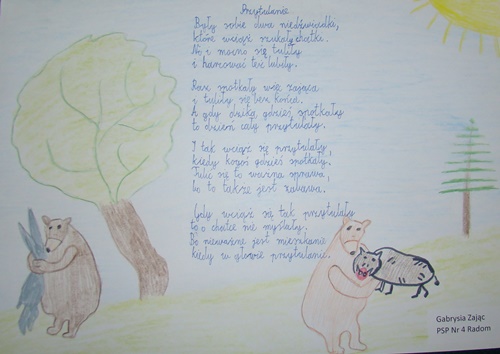 Przytulanie
Były sobie dwa niedźwiadki,
które wciąż szukały chatki.
No i mocno się tuliły
i harcować też lubiły.
Raz spotkały więc zająca
i tuliły się bez końca.
A gdy dzika gdzieś spotkały
to dzień cały przytulały.
I tak wciąż się przytulały,
kiedy kogoś gdzieś spotkały.
Tulić się to ważna sprawa,
bo to także jest zabawa.
Gdy wciąż się tak przytulały
to o chatce nie myślały.
Bo nieważne jest mieszkanie
kiedy w głowie przytulanie.
Gabrysia Zając
PSP Nr 4 Radom